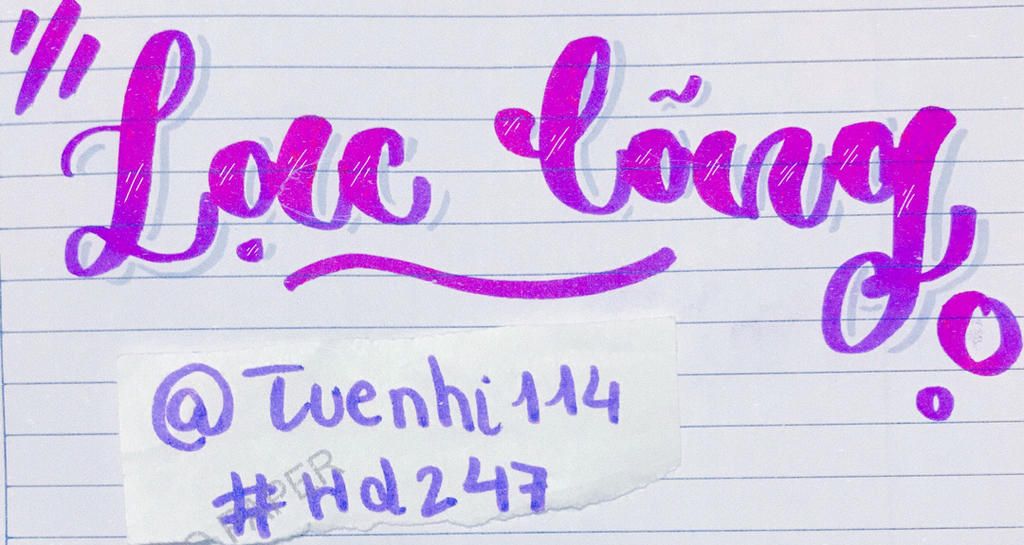 Lạc lõng
@Tuenhi114
#Hd247